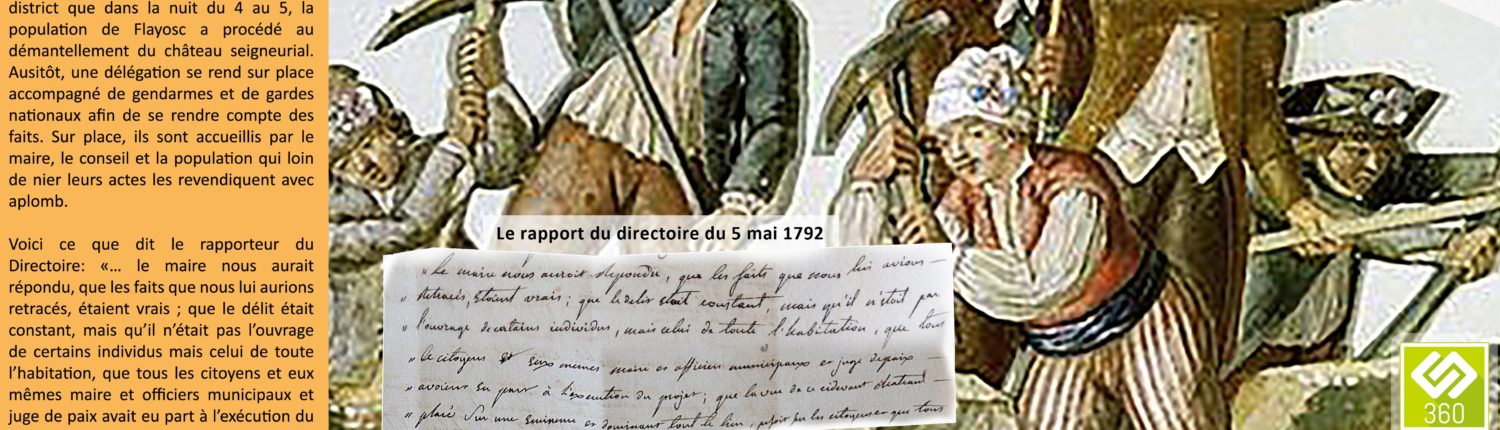 district que dans la nuit du 4 au 5, la
population de Flayosc a procédé au
démantellement du château seigneurial.
Ausitôt, une délégation se rend sur place
accompagné de gendarmes et de gardes
nationaux afin de se rendre compte des
faits. Sur place, ils sont accueillis par le
maire, le conseil et la population qui loin
de nier leurs actes les revendiquent avec
aplomb.
Voici ce que dit le rapporteur du
Directoire: «... le maire nous aurait
répondu, que les faits que nous lui aurions
retracés, étaient vrais ; que le délit était
constant, mais qu'il n'était pas l'ouvrage
de certains individus mais celui de toute
l'habitation, que tous les citoyens et eux
mêmes maire et officiers municipaux et
juge de paix avait eu part à l'exécution du
Le rapport du directoire du 5 mai 1792
" Le maire nous auroit répondu, que les faits que nous lui avions
" retracés, étoient vrais ; que le délit étoit constant, mais qu'il n'étoit pas
" l'ouvrage de certains individus, mais celui de toute l'habitation, que tous
" les citoyens et eux memes maire et officiers municipaux et juge de paix
" avoient eu part à l'execution du projet ; que la vue de ce cidevant chateau
" placé sur une eminence et dominant tout le lieu, les citoyens et que tous
360